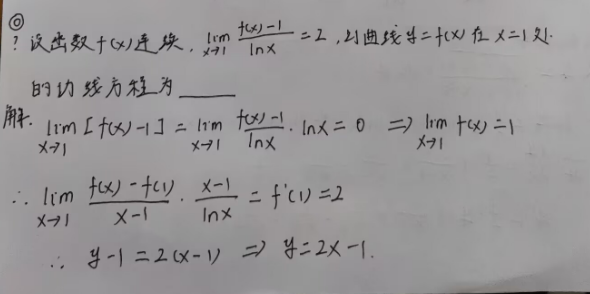 ◎
? 设函数f(x)连续, lim_{x→1} (f(x)-1)/(ln x) = 2, 则曲线y=f(x)在x=1处
的切线方程为____
解. lim_{x→1} [f(x)-1] = lim_{x→1} (f(x)-1)/(ln x) · ln x = 0 ⇒ lim_{x→1} f(x) = 1
∴ lim_{x→1} (f(x)-f(1))/(x-1) · (x-1)/(ln x) = f'(1) = 2
∴ y-1=2(x-1) ⇒ y=2x-1.